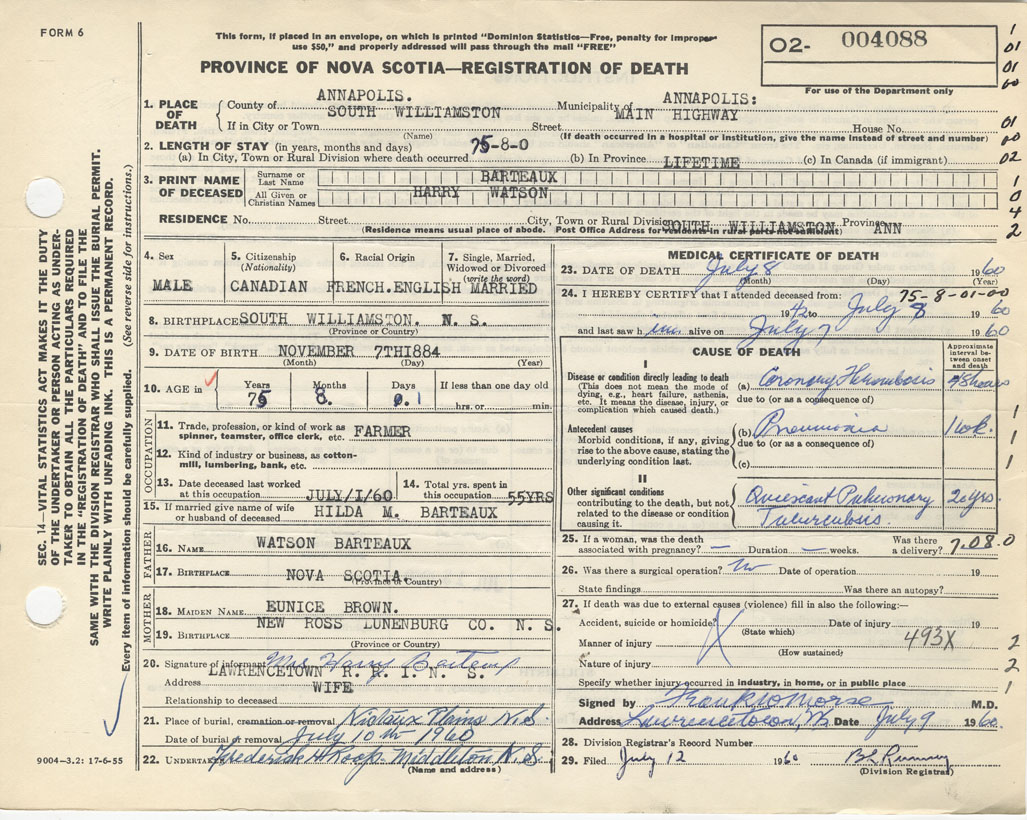 FORM 6
This form, if placed in an envelope, on which is printed "Dominion Statistics—Free, penalty for improper
use $50," and properly addressed will pass through the mail "FREE"
O2- 004088
For use of the Department only
PROVINCE OF NOVA SCOTIA—REGISTRATION OF DEATH
1. PLACE OF DEATH { County of ANNAPOLIS. Municipality of ANNAPOLIS:
If in City or Town SOUTH WILLIAMSTON Street MAIN HIGHWAY House No.
(Name) (If death occurred in a hospital or institution, give the name instead of street and number)
2. LENGTH OF STAY (in years, months and days)
(a) In City, Town or Rural Division where death occurred 75-8-0 (b) In Province LIFETIME (c) In Canada (if immigrant)
3. PRINT NAME OF DECEASED
Surname or Last Name BARTEAUX
All Given or Christian Names HARRY WATSON
RESIDENCE No. Street City, Town or Rural Division SOUTH WILLIAMSTON Province ANN
(Residence means usual place of abode. Post Office Address for residents in rural parts not sufficient)
4. Sex MALE
5. Citizenship (Nationality) CANADIAN
6. Racial Origin FRENCH.ENGLISH
7. Single, Married, Widowed or Divorced (write the word) MARRIED
8. BIRTHPLACE SOUTH WILLIAMSTON. N. S.
(Province or Country)
9. DATE OF BIRTH NOVEMBER 7TH1884
(Month) (Day) (Year)
10. AGE in Years 75 Months 8. Days 1 If less than one day old
hrs. or min.
OCCUPATION
11. Trade, profession, or kind of work as
spinner, teamster, office clerk, etc. FARMER
12. Kind of industry or business, as cotton-
mill, lumbering, bank, etc.
13. Date deceased last worked
at this occupation JULY/I/60
14. Total yrs. spent in
this occupation 55YRS
15. If married give name of wife
or husband of deceased HILDA M. BARTEAUX
FATHER
16. NAME WATSON BARTEAUX
17. BIRTHPLACE NOVA SCOTIA
(Province or Country)
MOTHER
18. MAIDEN NAME EUNICE BROWN.
19. BIRTHPLACE NEW ROSS LUNENBURG CO. N. S.
(Province or Country)
20. Signature of informant Mrs Harry Barteaux
Address LAWRENCETOWN R. R. I. N. S.
Relationship to deceased WIFE
21. Place of burial, cremation or removal Nictaux Plains N.S.
Date of burial or removal July 10th 1960
22. UNDERTAKER Frederick H Roop Middleton N.S.
(Name and address)
MEDICAL CERTIFICATE OF DEATH
23. DATE OF DEATH July 8 1960
(Month) (Day) (Year)
75-8-01-00
24. I HEREBY CERTIFY that I attended deceased from:
1942 to July 8 1960
and last saw him alive on July 7 1960
CAUSE OF DEATH
Approximate interval between onset and death
I
Disease or condition directly leading to death
(This does not mean the mode of
dying, e.g., heart failure, asthenia,
etc. It means the disease, injury, or
complication which caused death.)
(a) Coronary Thrombosis 48 hours
due to (or as a consequence of)
Antecedent causes
Morbid conditions, if any, giving
rise to the above cause, stating the
underlying condition last.
(b) Pneumonia 1 wk.
due to (or as a consequence of)
(c)
II
Other significant conditions
contributing to the death, but not
related to the disease or condition
causing it.
Quiescant Pulmonary 20 yrs.
Tuberculosis.
25. If a woman, was the death
associated with pregnancy? — Duration — weeks. Was there a delivery? 7.08.0
26. Was there a surgical operation? no Date of operation 19
State findings Was there an autopsy?
27. If death was due to external causes (violence) fill in also the following:—
Accident, suicide or homicide? Date of injury 19
(State which)
Manner of injury 493X
(How sustained)
Nature of injury
Specify whether injury occurred in industry, in home, or in public place
Signed by Frank W Morse M.D.
Address Lawrencetown, NS Date July 9 1960
28. Division Registrar's Record Number
29. Filed July 12 1960
(Division Registrar)
1
01
01
60
01
02
1
0
4
2
1
1
1
2
2
1
SEC. 14—VITAL STATISTICS ACT MAKES IT THE DUTY
OF THE UNDERTAKER OR PERSON ACTING AS UNDER-
TAKER TO OBTAIN ALL THE PARTICULARS REQUIRED
IN THE "REGISTRATION OF DEATH" AND TO FILE THE
SAME WITH THE DIVISION REGISTRAR WHO SHALL ISSUE THE BURIAL PERMIT.
WRITE PLAINLY WITH UNFADING INK. THIS IS A PERMANENT RECORD.
Every item of information should be carefully supplied. (See reverse side for instructions.)
9004—3.2: 17-6-55